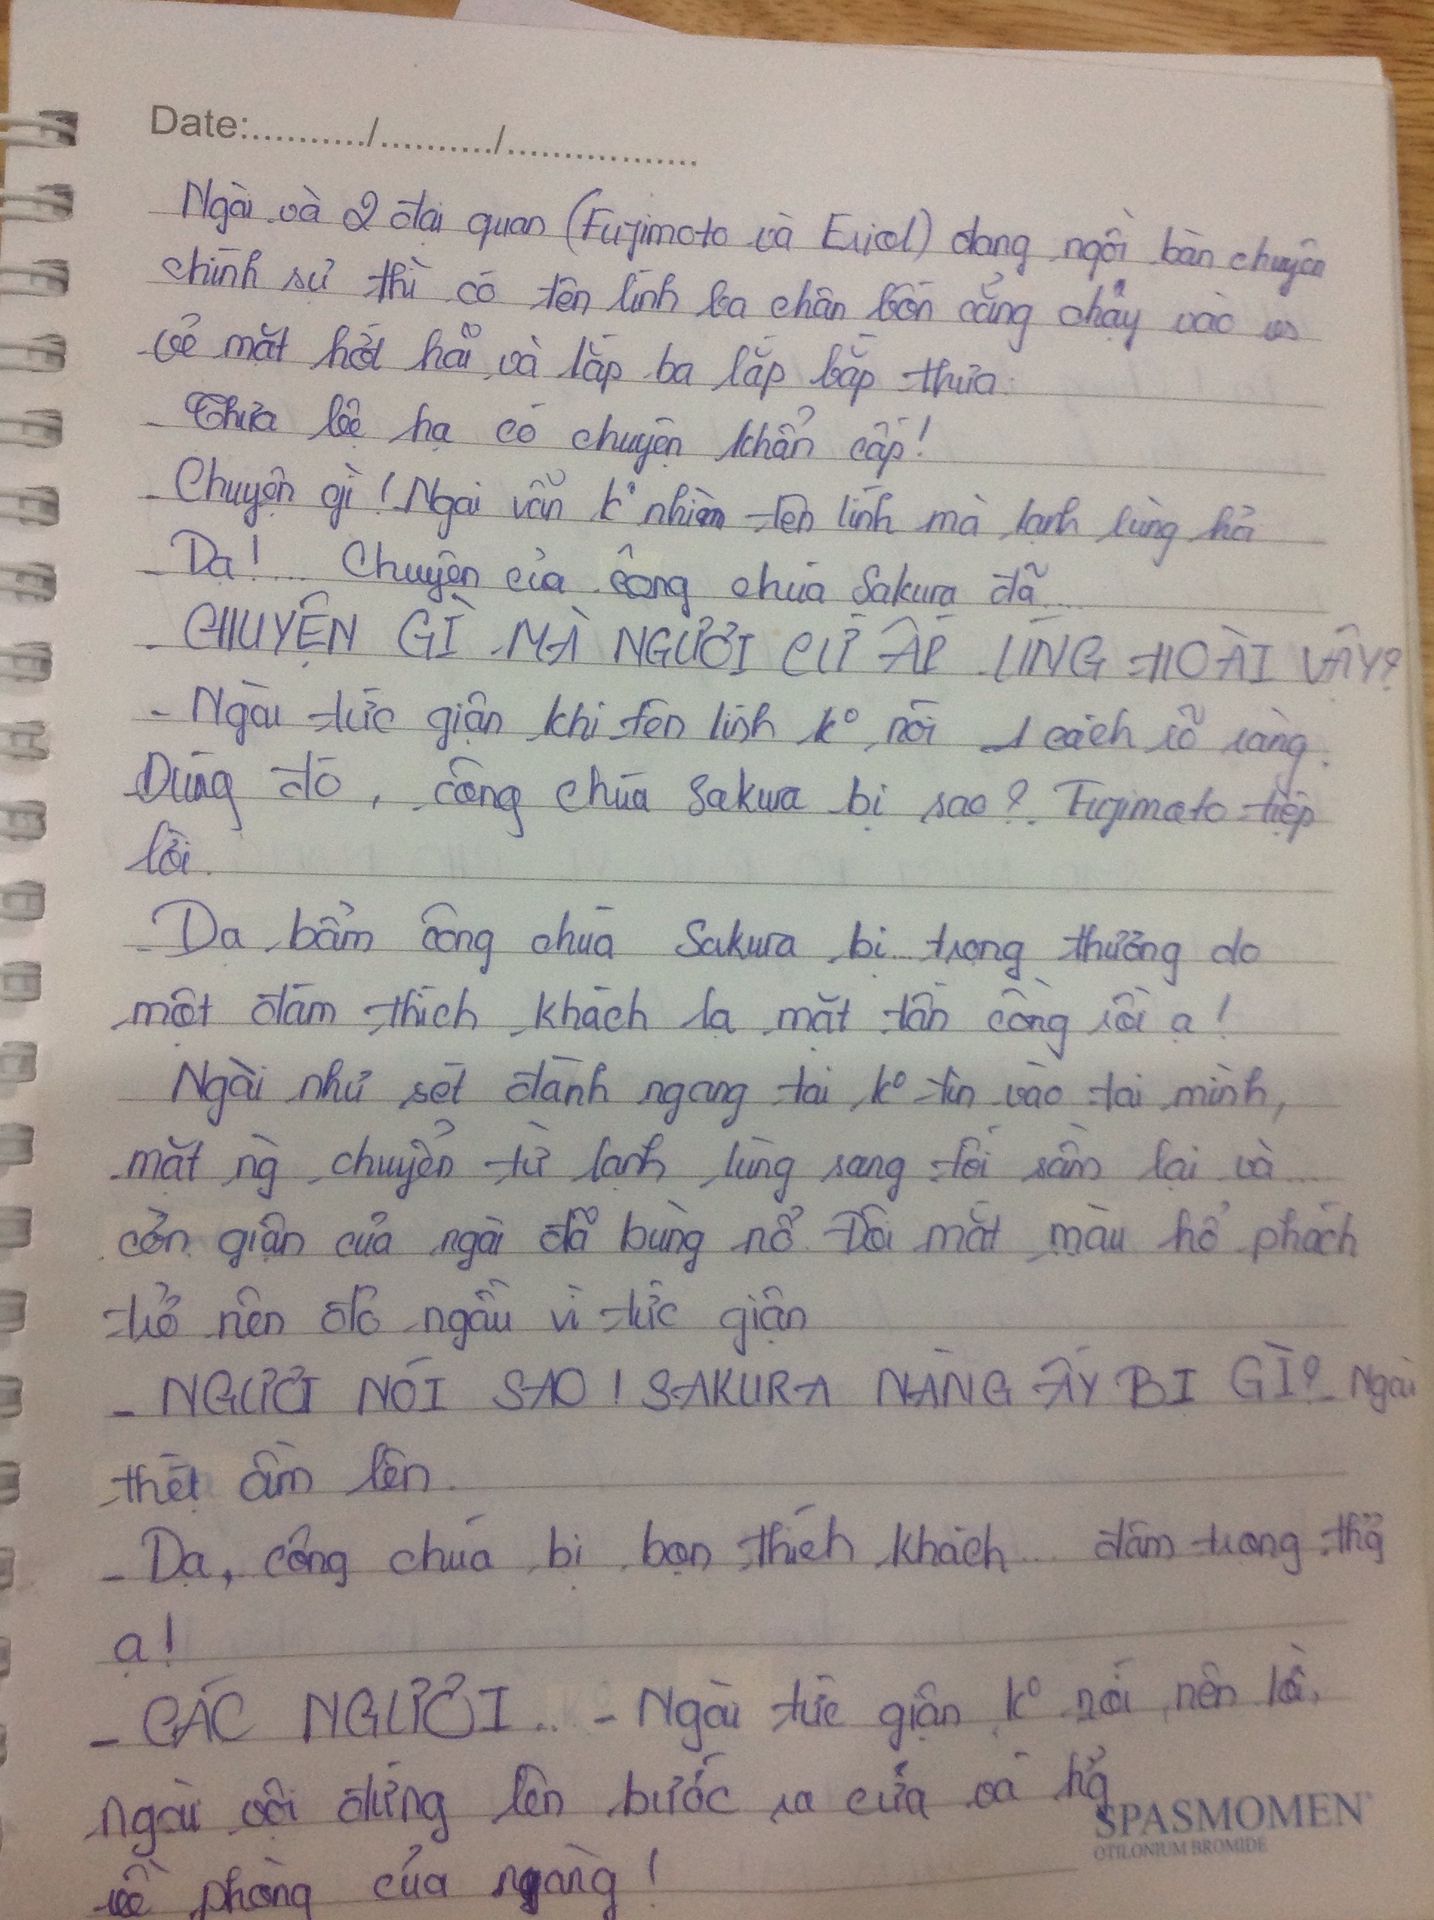 Date:.........../.........../.................
Ngài và 2 đại quan (Fujimoto và Eriol) đang ngồi bàn chuyện
chính sự thì có tên lính ba chân bốn cẳng chảy vào
vẻ mặt hớt hải và lắp ba lắp bắp thưa.
- Thưa bệ hạ có chuyện khẩn cấp!
- Chuyện gì! Ngài vẫn k° nhìn tên lính mà lạnh lùng hỏi
- Dạ!... Chuyện của công chúa Sakura đã...
- CHUYỆN GÌ MÀ NGƯƠI CỨ ẤP ÚNG HOÀI VẬY?
- Ngài tức giận khi tên lính k° nói 1 cách rõ ràng.
Đúng đó, công chúa Sakura bị sao? Fujimoto tiếp
lời.
- Dạ bẩm công chúa Sakura bị... trọng thương do
một đám thích khách lạ mặt tấn công rồi ạ!
Ngài như sét đánh ngang tai k° tin vào tai mình,
mặt ng chuyển từ lạnh lùng sang tối sầm lại và
cơn giận của ngài đã bùng nổ. Đôi mắt màu hổ phách
trở nên đỏ ngầu vì tức giận
- NGƯƠI NÓI SAO! SAKURA NÀNG ẤY BỊ GÌ? - Ngài
thét ầm lên.
- Dạ, công chúa bị bọn thích khách... đâm trọng thg
ạ!
- CÁC NGƯƠI... - Ngài tức giận k° nói nên lời,
ngài vội đứng lên bước ra cửa và hg
về phòng của nàng!
SPASMOMEN®
OTILONIUM BROMIDE